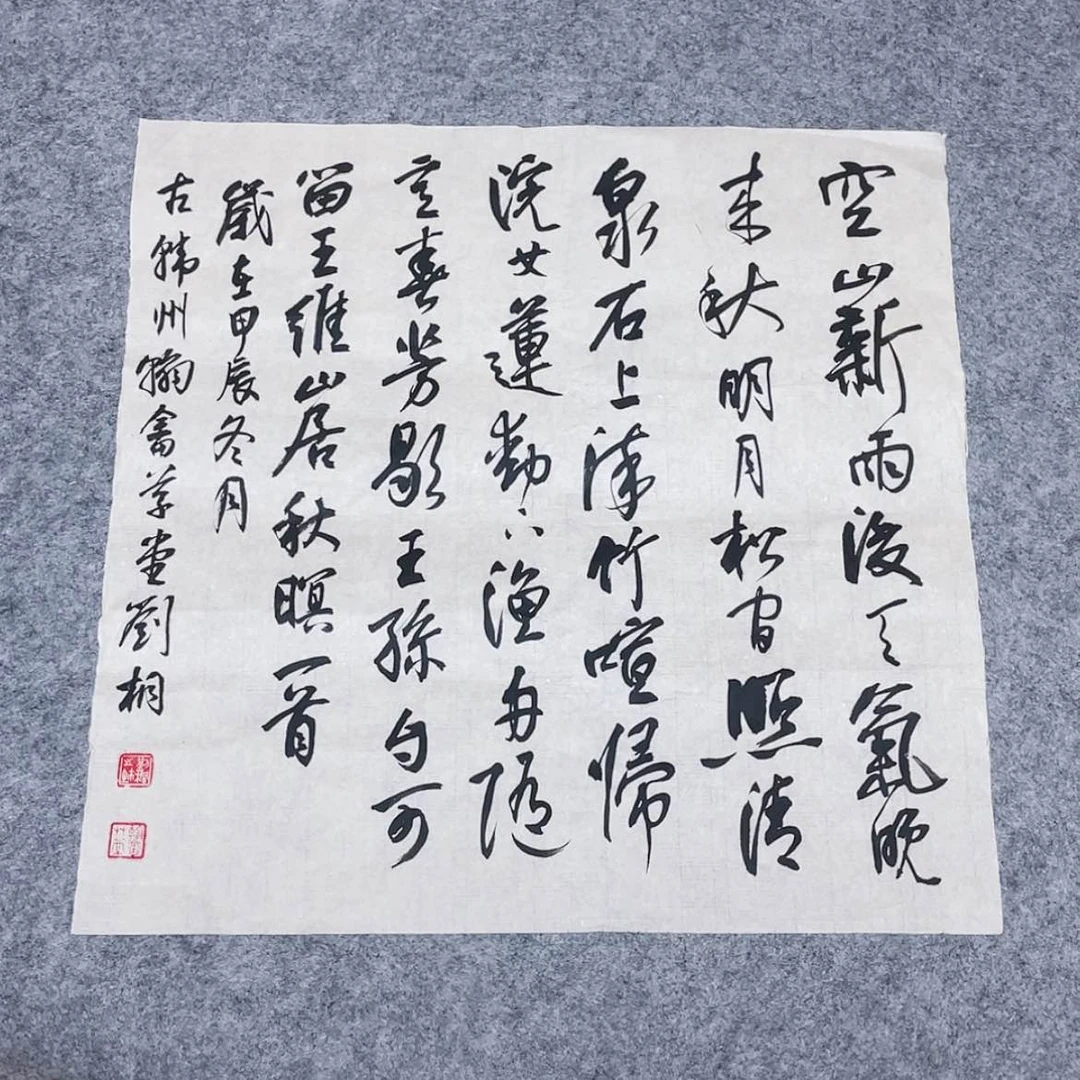 空山新雨後天氣晚
来秋明月松间照清
泉石上流竹喧歸
浣女蓮動下漁舟隨
意春芳歇王孫自可
留王維山居秋暝一首
歲在甲辰冬月
古韩州草堂劉相